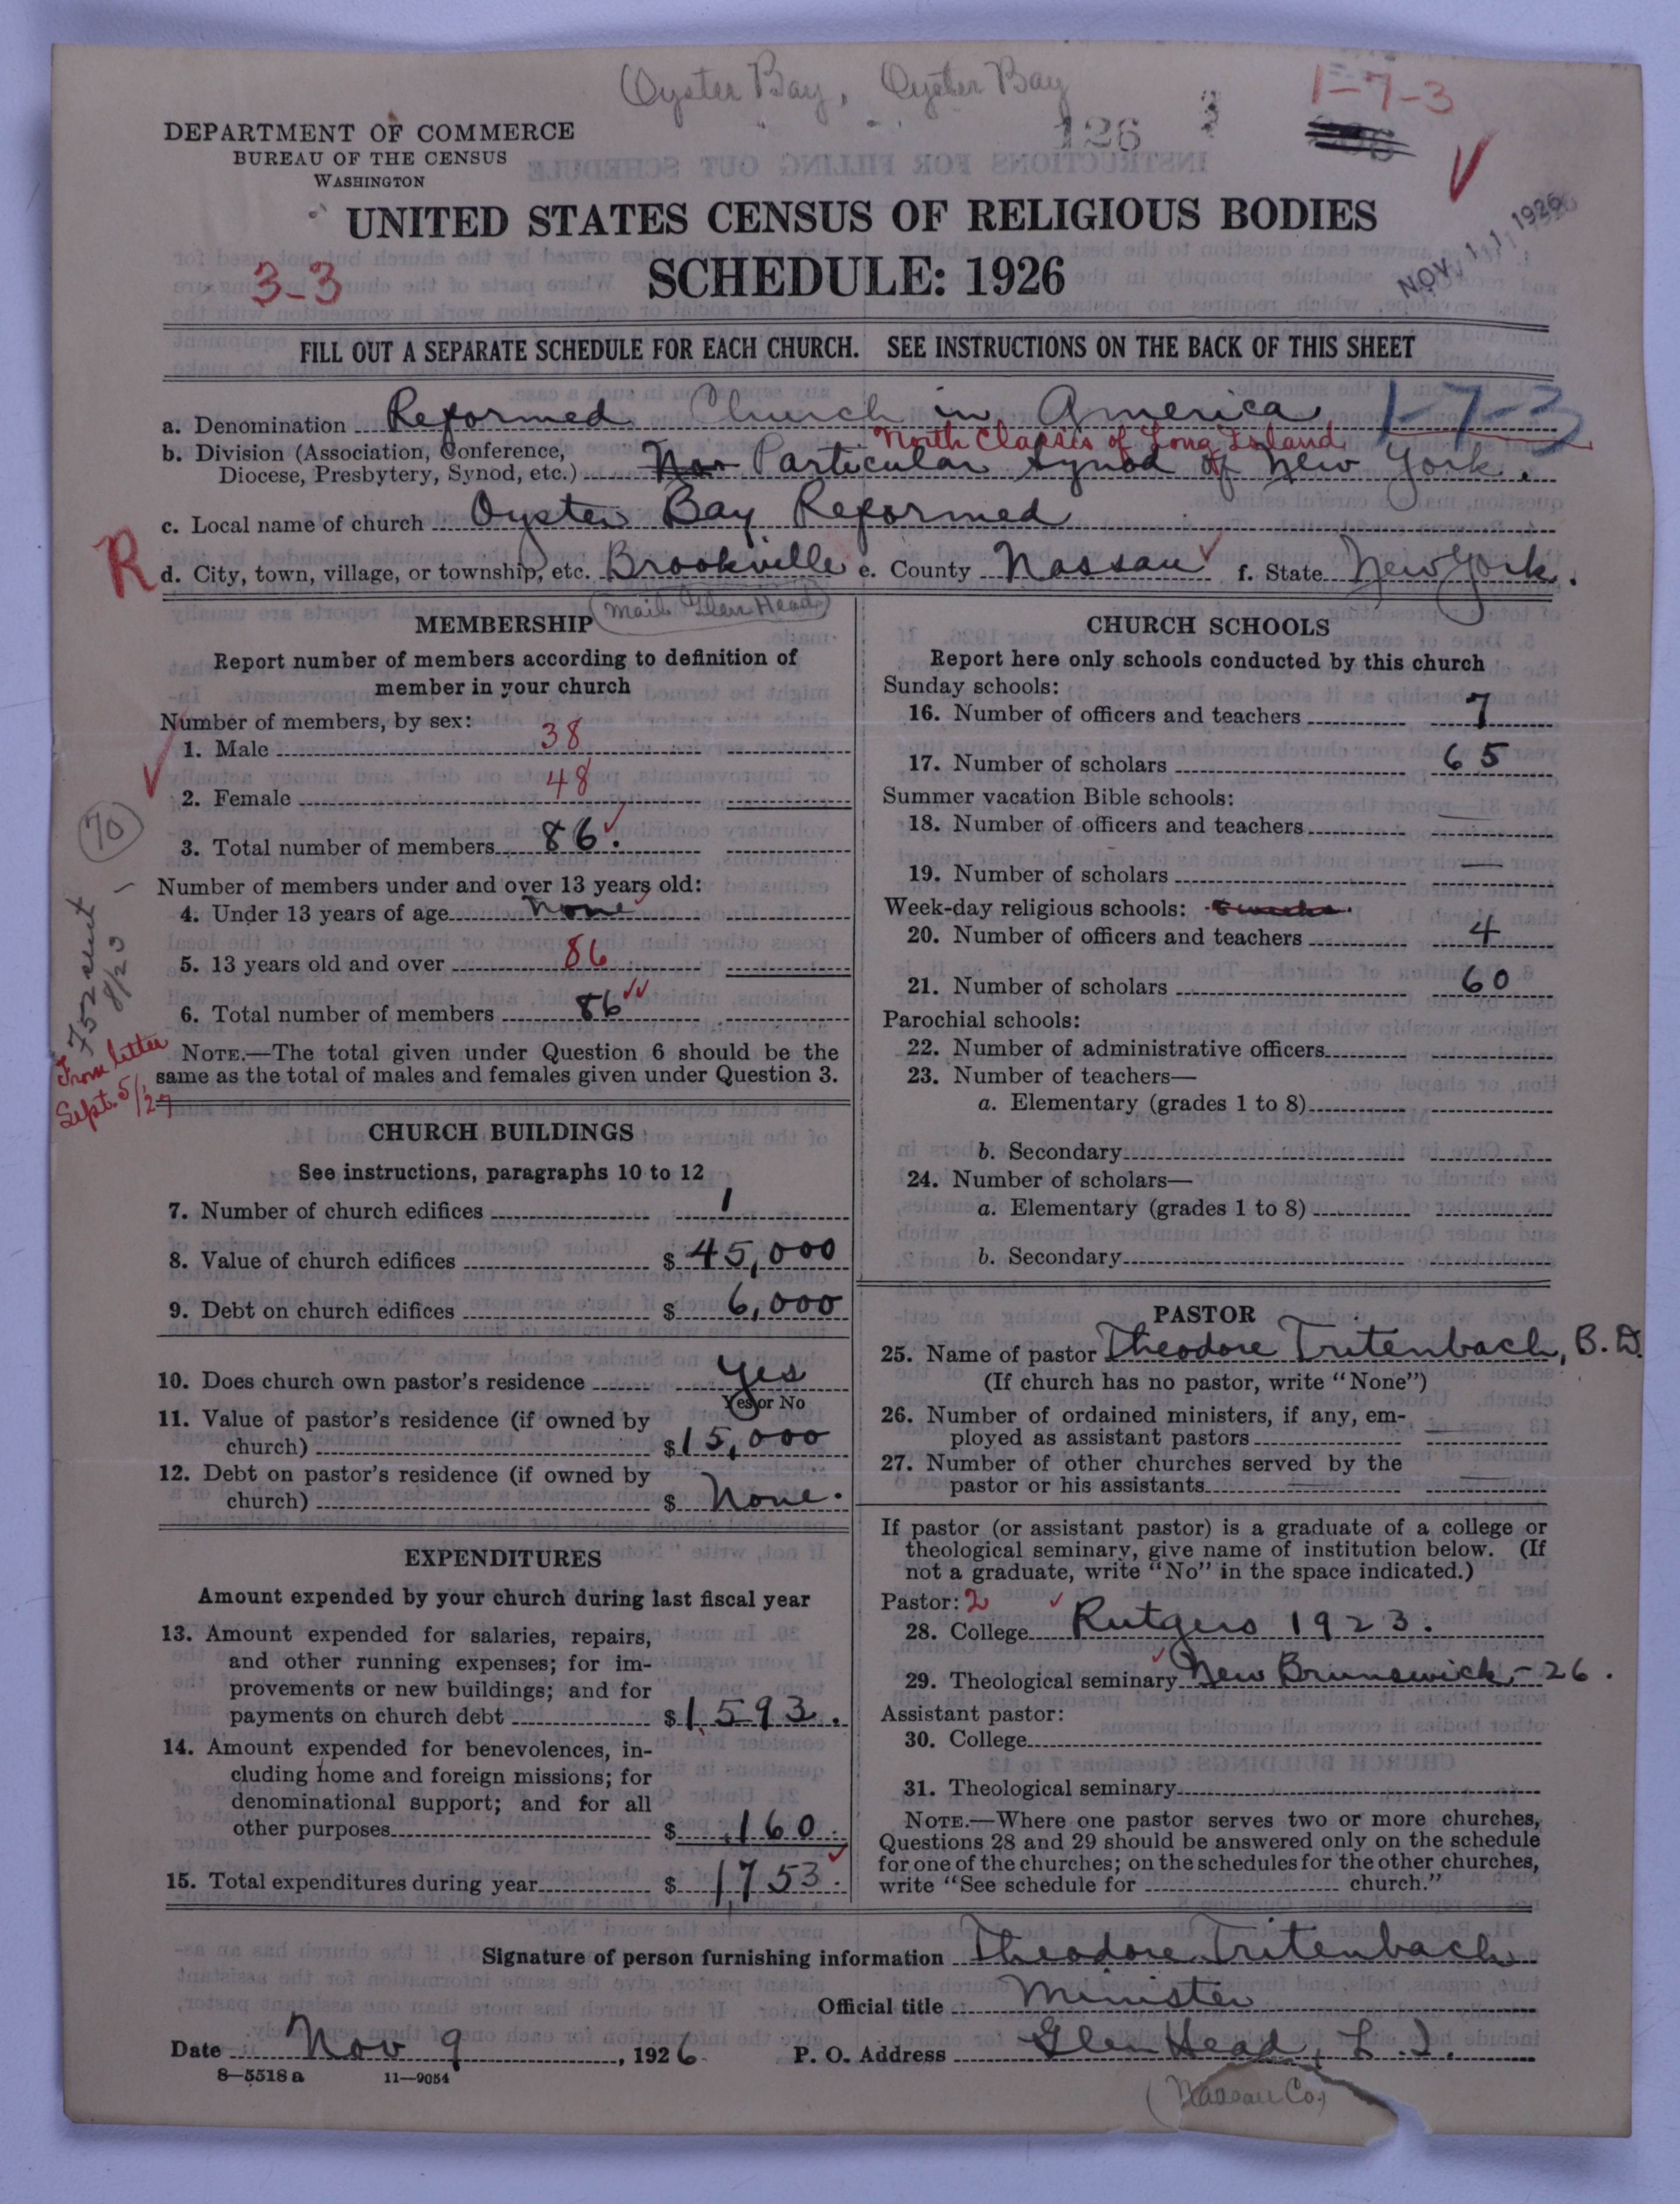 Oyster Bay, Oyster Bay
1-7-3
126
3
DEPARTMENT OF COMMERCE
BUREAU OF THE CENSUS
WASHINGTON
UNITED STATES CENSUS OF RELIGIOUS BODIES
NOV 11 1926
3-3
SCHEDULE: 1926
FILL OUT A SEPARATE SCHEDULE FOR EACH CHURCH. SEE INSTRUCTIONS ON THE BACK OF THIS SHEET
a. Denomination Reformed Church in America 1-7-3
North Classis of Long Island
b. Division (Association, Conference,
Diocese, Presbytery, Synod, etc.) Particular Synod of New York.
c. Local name of church Oyster Bay Reformed
R
d. City, town, village, or township, etc. Brookville e. County Nassau f. State New York.
(Mail Glen Head)
MEMBERSHIP
Report number of members according to definition of
member in your church
Number of members, by sex:
1. Male 38
2. Female 48
3. Total number of members 86.
Number of members under and over 13 years old:
4. Under 13 years of age None
5. 13 years old and over 86
6. Total number of members 86
NOTE.—The total given under Question 6 should be the
same as the total of males and females given under Question 3.
70
752 sent
8/23
From letter
Sept. 5/27
CHURCH BUILDINGS
See instructions, paragraphs 10 to 12
7. Number of church edifices 1
8. Value of church edifices $ 45,000
9. Debt on church edifices $ 6,000
10. Does church own pastor's residence Yes
Yes or No
11. Value of pastor's residence (if owned by
church) $ 15,000
12. Debt on pastor's residence (if owned by
church) $ None.
EXPENDITURES
Amount expended by your church during last fiscal year
13. Amount expended for salaries, repairs,
and other running expenses; for im-
provements or new buildings; and for
payments on church debt $ 1,593.
14. Amount expended for benevolences, in-
cluding home and foreign missions; for
denominational support; and for all
other purposes $ 160.
15. Total expenditures during year $ 1,753.
CHURCH SCHOOLS
Report here only schools conducted by this church
Sunday schools:
16. Number of officers and teachers 7
17. Number of scholars 65
Summer vacation Bible schools:
18. Number of officers and teachers —
19. Number of scholars —
Week-day religious schools:
20. Number of officers and teachers 4
21. Number of scholars 60
Parochial schools:
22. Number of administrative officers
23. Number of teachers—
a. Elementary (grades 1 to 8)
b. Secondary
24. Number of scholars—
a. Elementary (grades 1 to 8)
b. Secondary
PASTOR
25. Name of pastor Theodore Tritenbach, B.D.
(If church has no pastor, write "None")
26. Number of ordained ministers, if any, em-
ployed as assistant pastors —
27. Number of other churches served by the
pastor or his assistants —
If pastor (or assistant pastor) is a graduate of a college or
theological seminary, give name of institution below. (If
not a graduate, write "No" in the space indicated.)
Pastor: 2
28. College Rutgers 1923.
29. Theological seminary New Brunswick - 26.
Assistant pastor:
30. College
31. Theological seminary
NOTE.—Where one pastor serves two or more churches,
Questions 28 and 29 should be answered only on the schedule
for one of the churches; on the schedules for the other churches,
write "See schedule for church."
Signature of person furnishing information Theodore Tritenbach
Official title Minister
Date Nov 9, 1926 P. O. Address Glen Head, L. I.
8—5518 a 11—9054
(Nassau Co.)